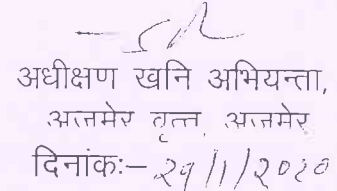 अधीक्षण खनि अभियन्ता,
अजमेर वृत्त, अजमेर
दिनांकः— 29/1/2020